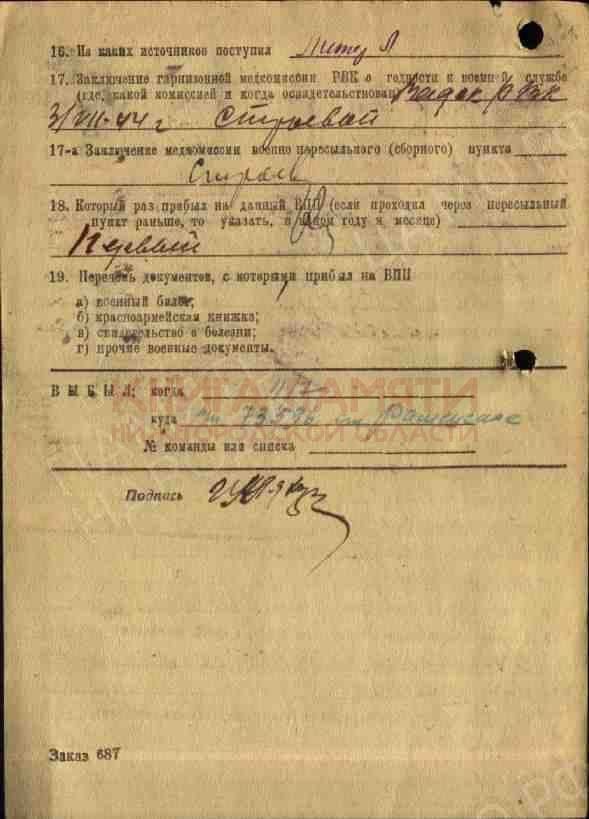 16. Из каких источников поступил Литер А
17. Заключение гарнизонной медкомиссии РВК о годности к военной службе
(где, какой комиссией и когда освидетельствован)
31/VII-44 г Строевой
17-а Заключение медкомиссии военно пересыльного (сборного) пункта
18. Который раз прибыл на данный ВПП (если проходил через пересыльный
пункт раньше, то указать, в каком году и месяце)
Первый
19. Перечень документов, с которыми прибыл на ВПП
а) военный билет;
б) красноармейская книжка;
в) свидетельство о болезни;
г) прочие военные документы.
ВЫБЫЛ: когда
КНИГА ПАМЯТИ
куда 73596
НИЖЕГОРОДСКОЙ ОБЛАСТИ
№ команды или списка
Подпись
Заказ 687